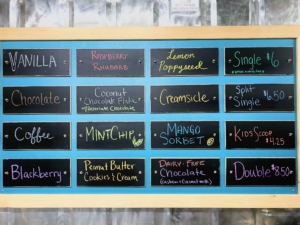 VANILLA
RASPBERRY
RHUBARB
Lemon
Poppyseed
Single $6
Chocolate
Coconut
Chocolate Flake
Creamsicle
Split
Single $6.50
Coffee
MINT CHIP
MANGO
SORBET
KIDS SCOOP
$4.25
Blackberry
Peanut Butter
Cookies & Cream
DAIRY-FREE
Chocolate
(cashew & coconut milk)
Double $8.50